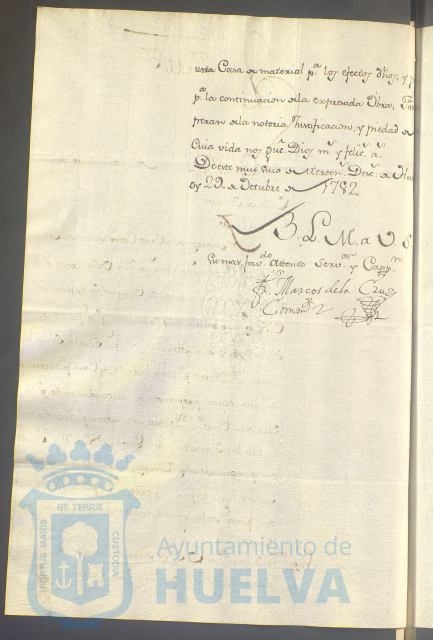 una Casa de material p.ª los efectos dhos, y
p.ª la continuacion de la expresada Obra,
peran de la notoria Justificacion, y piedad de
Cuia vida nos gu.e Dios m.s y felic.s a.s
De este mui Vuo de Mercen.s Desc.s de
29. de Octubre de 1782.
B. L. M. a V. S
Su mas fav.do Attento Serv.or y Capp.n
Fr. Marcos de la Cruz
Comm.r
PORTUS MARIS
ET TERRÆ
CUSTODIA
Ayuntamiento de
HUELVA